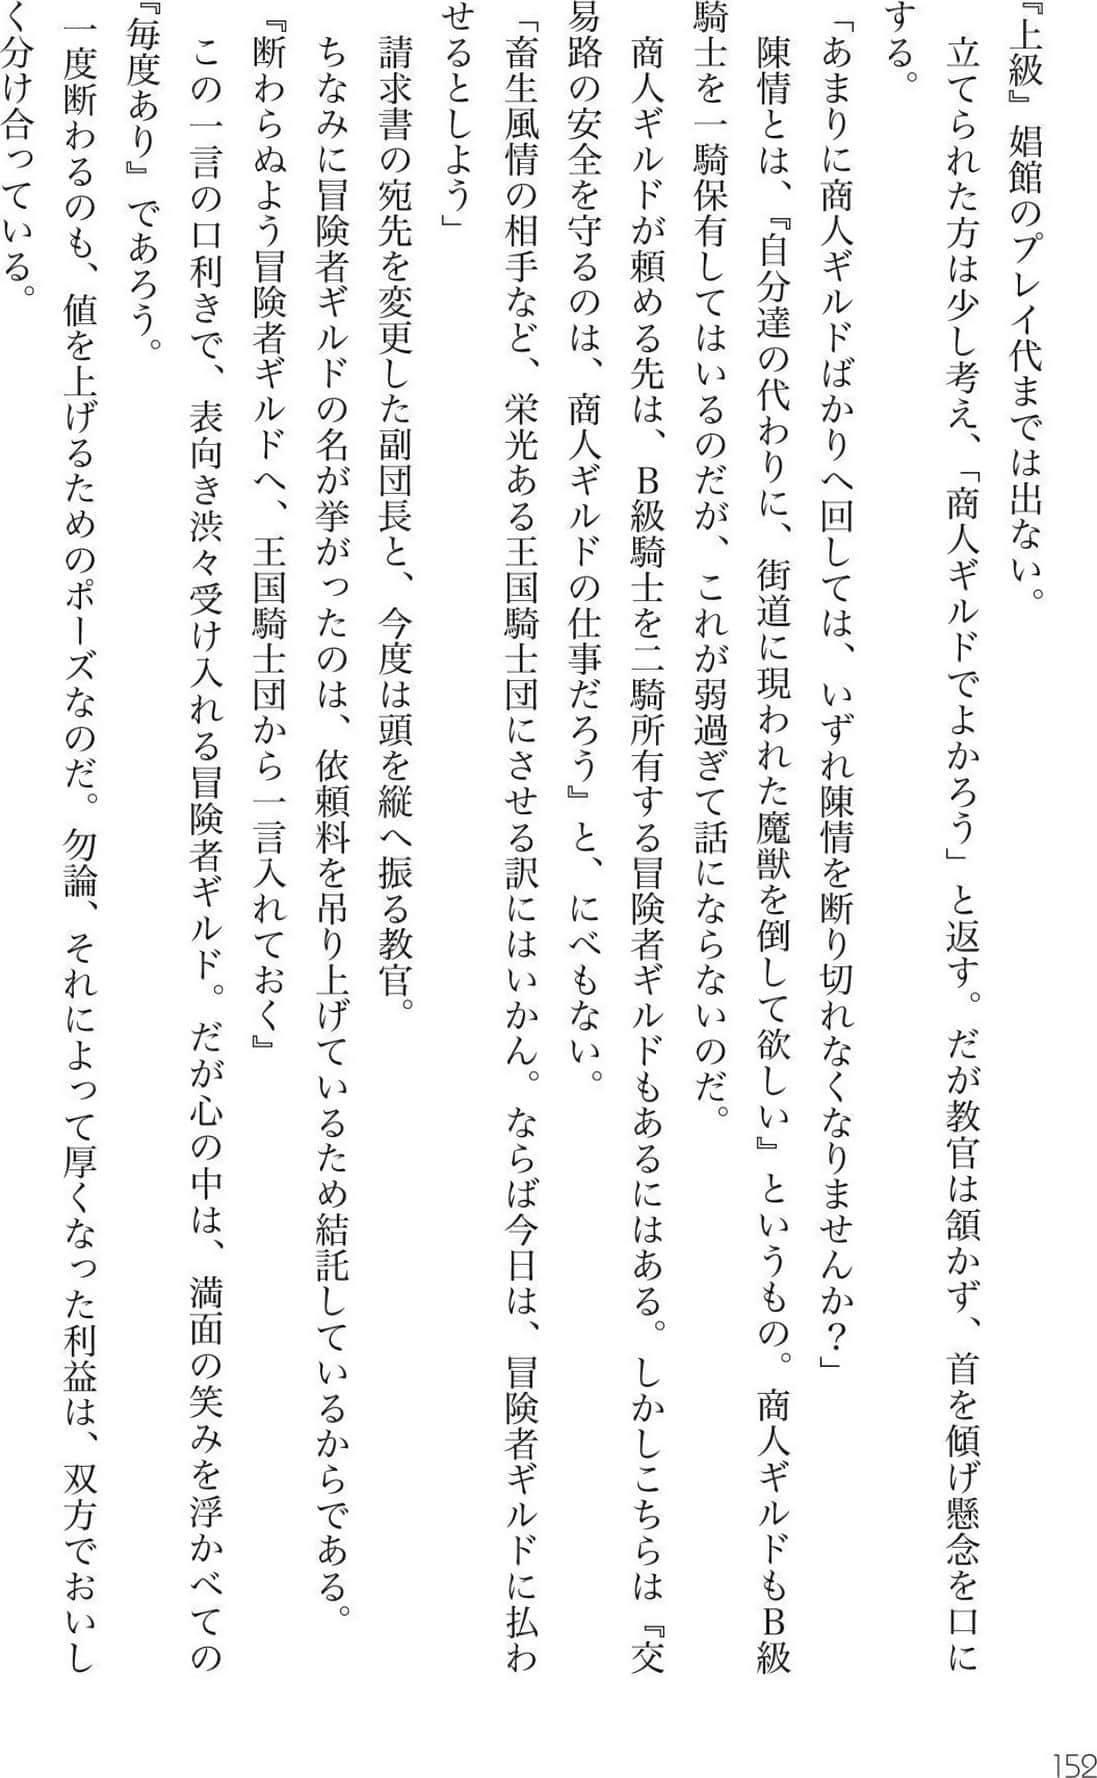 『上級』娼館のプレイ代までは出ない。
　立てられた方は少し考え、「商人ギルドでよかろう」と返す。だが教官は頷かず、首を傾げ懸念を口に
する。
「あまりに商人ギルドばかりへ回しては、いずれ陳情を断り切れなくなりませんか？」
　陳情とは、『自分達の代わりに、街道に現われた魔獣を倒して欲しい』というもの。商人ギルドもＢ級
騎士を一騎保有してはいるのだが、これが弱過ぎて話にならないのだ。
　商人ギルドが頼める先は、Ｂ級騎士を二騎所有する冒険者ギルドもあるにはある。しかしこちらは『交
易路の安全を守るのは、商人ギルドの仕事だろう』と、にべもない。
「畜生風情の相手など、栄光ある王国騎士団にさせる訳にはいかん。ならば今日は、冒険者ギルドに払わ
せるとしよう」
　請求書の宛先を変更した副団長と、今度は頭を縦へ振る教官。
　ちなみに冒険者ギルドの名が挙がったのは、依頼料を吊り上げているため結託しているからである。
『断わらぬよう冒険者ギルドへ、王国騎士団から一言入れておく』
　この一言の口利きで、表向き渋々受け入れる冒険者ギルド。だが心の中は、満面の笑みを浮かべての
『毎度あり』であろう。
　一度断わるのも、値を上げるためのポーズなのだ。勿論、それによって厚くなった利益は、双方でおいし
く分け合っている。
152